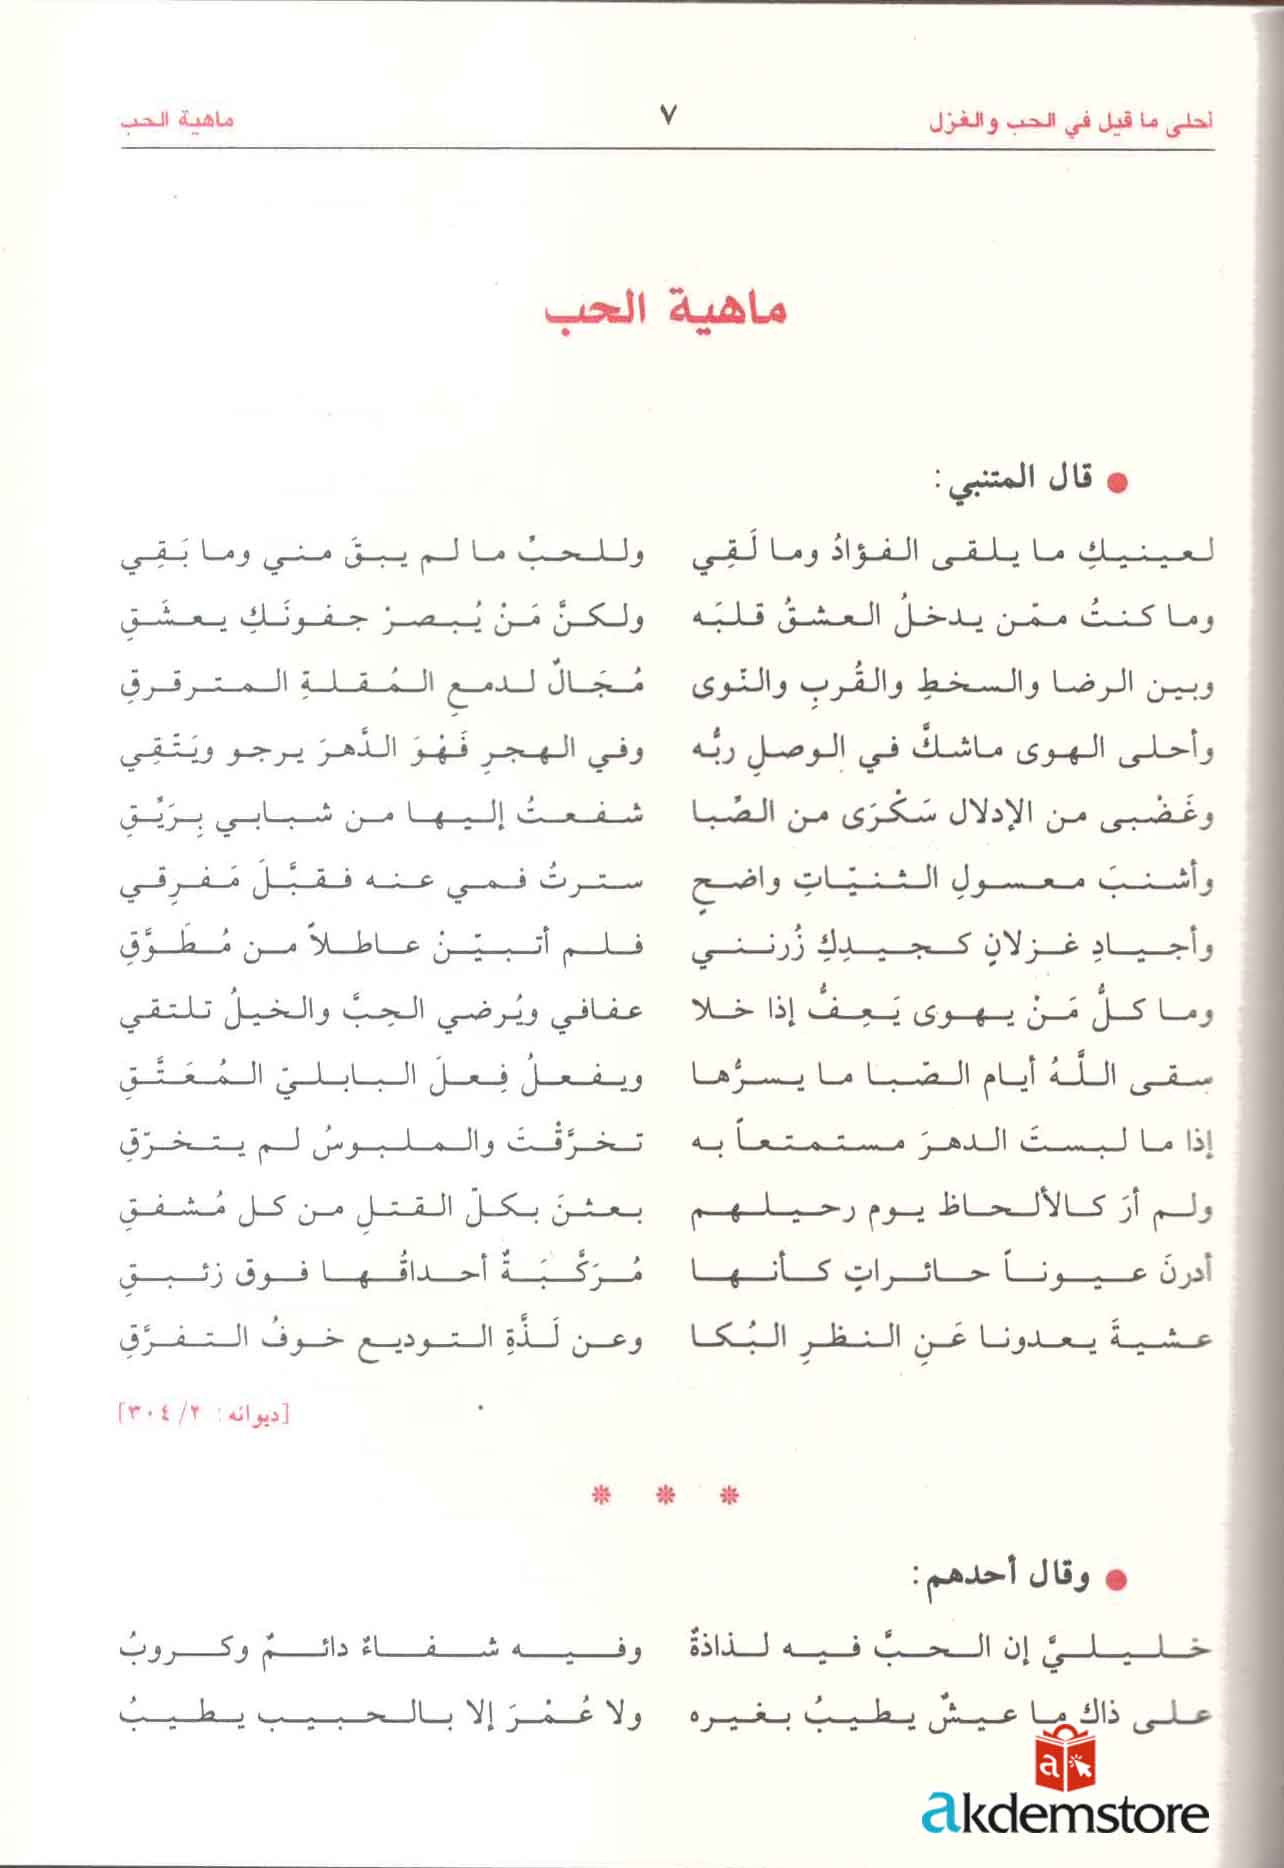 أحلى ما قيل في الحب والغزل ٧ ماهية الحب
ماهية الحب
● قال المتنبي:
لعينيكِ ما يلقى الفؤادُ وما لَقِي وللحبِّ ما لم يبقَ مني وما بَقِي
وما كنتُ ممّن يدخلُ العشقُ قلبَه ولكنَّ مَنْ يُبصرْ جفونَكِ يعشَقِ
وبين الرضا والسخطِ والقُربِ والنّوى مُجَالٌ لدمعِ المُقلةِ المترقرقِ
وأحلى الهوى ماشكَّ في الوصلِ ربُّه وفي الهجرِ فَهْوَ الدَّهرَ يرجو ويَتّقِي
وغَضْبى من الإدلال سَكْرَى من الصِّبا شفعتُ إليها من شبابي بِرَيِّقِ
وأشنبَ معسولِ الثنيّاتِ واضحٍ سترتُ فمي عنه فقبَّلَ مَفرِقي
وأجيادِ غزلانٍ كجيدِكِ زُرنني فلم أتبيّنْ عاطلاً من مُطَوَّقِ
وما كلُّ مَنْ يهوى يَعِفُّ إذا خلا عفافي ويُرضي الحِبَّ والخيلُ تلتقي
سقى اللَّهُ أيام الصّبا ما يسرُّها ويفعلُ فِعلَ البابليّ المُعَتَّقِ
إذا ما لبستَ الدهرَ مستمتعاً به تخرَّقْتَ والملبوسُ لم يتخرّقِ
ولم أرَ كالألحاظ يوم رحيلهم بعثنَ بكلّ القتلِ من كل مُشفقِ
أدرنَ عيوناً حائراتٍ كأنها مُرَكَّبَةٌ أحداقُها فوق زئبقِ
عشيةَ يعدونا عَنِ النظرِ البُكا وعن لَذَّةِ التوديع خوفُ التفرَّقِ
[ديوانه: ٢/ ٣٠٤]
* * *
● وقال أحدهم:
خليليَّ إن الحبَّ فيه لذاذةٌ وفيه شفاءٌ دائمٌ وكروبُ
على ذاك ما عيشٌ يطيبُ بغيره ولا عُمْرَ إلا بالحبيب يطيبُ
a
akdemstore